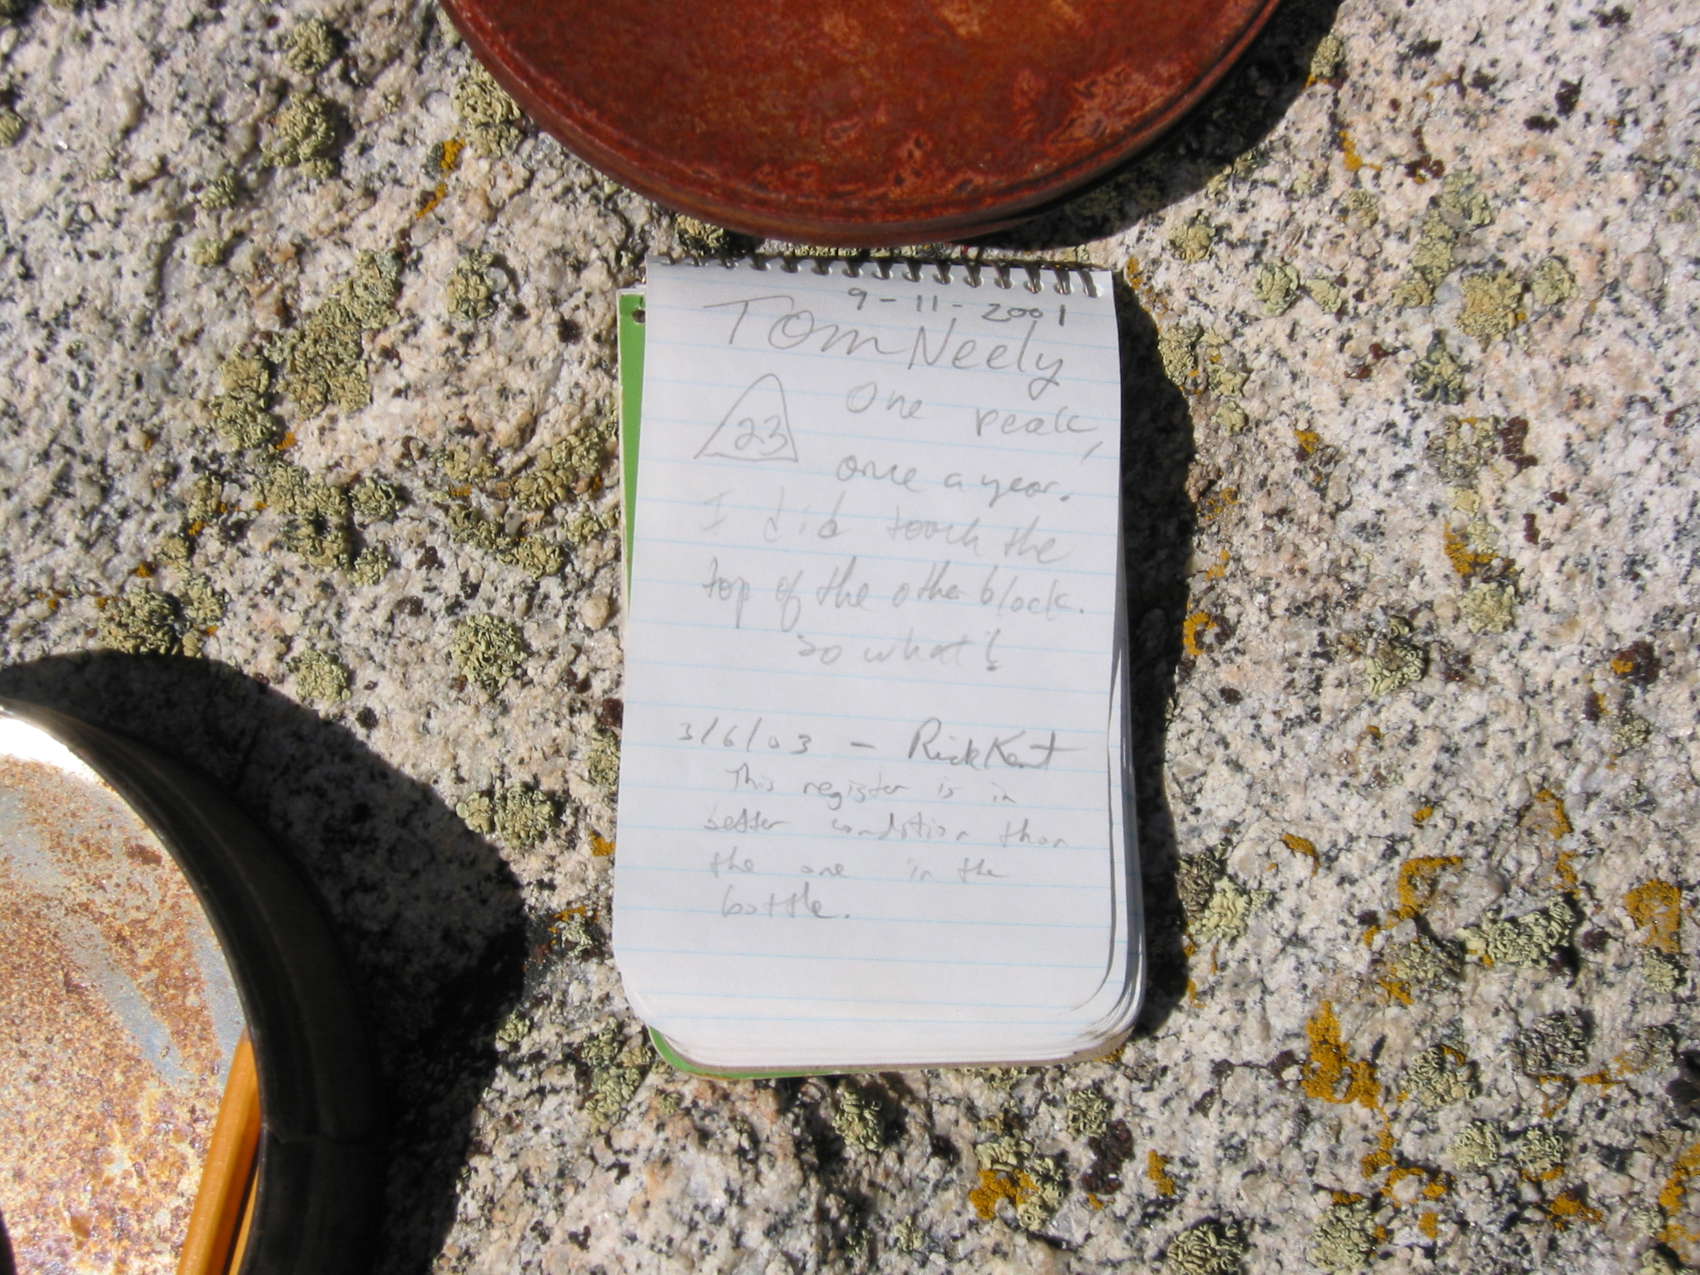 9-11-2001
Tom Neely
23
One peak,
once a year.
I did touch the
top of the other block.
So what!
3/6/03 - Rick Kent
This register is in
better condition than
the one in the
bottle.